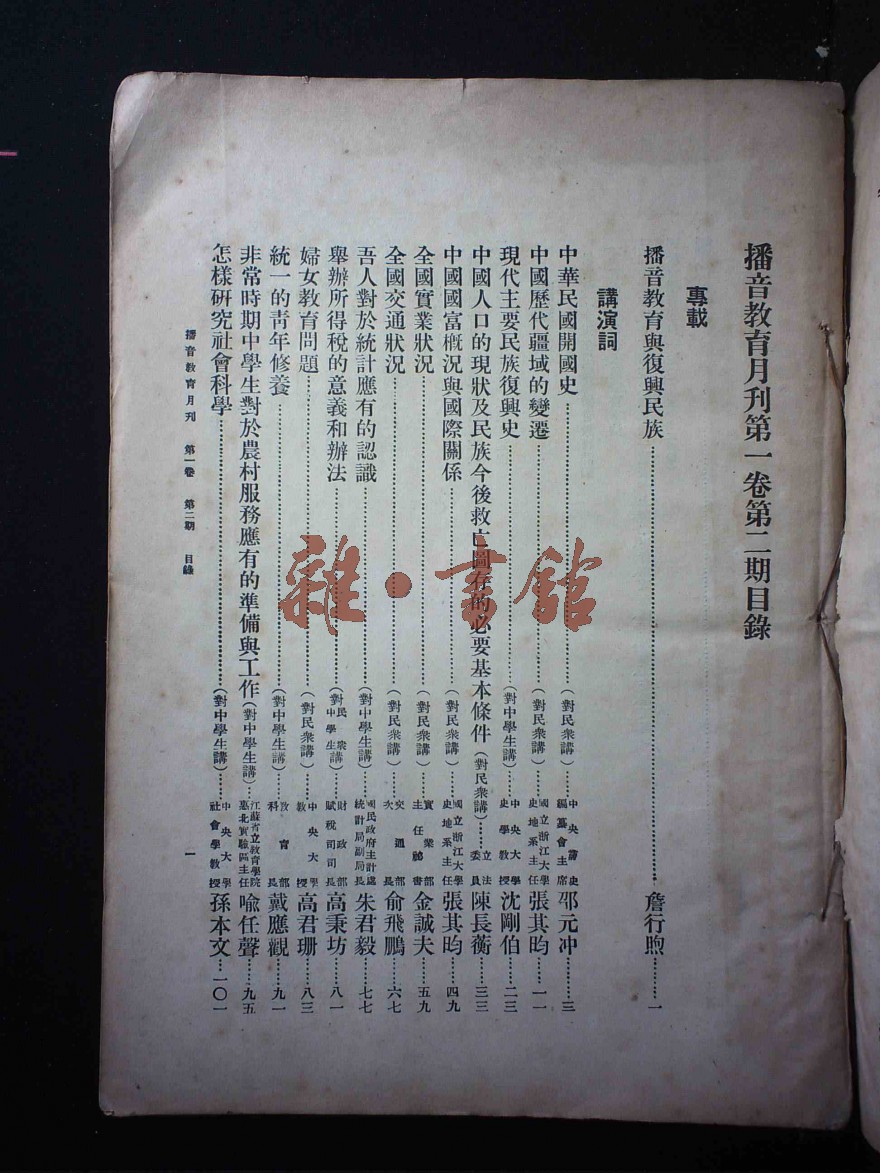 播音教育月刊第一卷第二期目錄
專載
播音教育與復興民族……詹行煦……一
講演詞
中華民國開國史……(對民衆講)……中央黨史編纂會主席 邵元冲……三
中國歷代疆域的變遷……(對民衆講)……國立浙江大學史地系主任 張其昀……一一
現代主要民族復興史……(對中學生講)……中央大學史學教授 沈剛伯……二三
中國人口的現狀及民族今後救亡圖存的必要基本條件(對民衆講)……立法委員 陳長蘅……三三
中國國富概況與國際關係……(對民衆講)……國立浙江大學史地系主任 張其昀……四九
全國實業狀況……(對民衆講)……實業部主任祕書 金誠夫……五九
全國交通狀況……(對民衆講)……交通部次長 俞飛鵬……六七
吾人對於統計應有的認識……(對中學生講)……國民政府主計處統計局副局長 朱君毅……七七
舉辦所得稅的意義和辦法……(對民衆中學生講)……財政部賦稅司司長 高秉坊……八一
婦女教育問題……(對民衆講)……中央大學教授 高君珊……八三
統一的靑年修養……(對中學生講)……教育部科長 戴應觀……九一
非常時期中學生對於農村服務應有的準備與工作(對中學生講)……江蘇省立教育學院惠北實驗區主任 喻任聲……九五
怎樣研究社會科學……(對中學生講)……中央大學社會學教授 孫本文……一〇一
播音教育月刊 第一卷 第二期 目錄
一
雜·書館